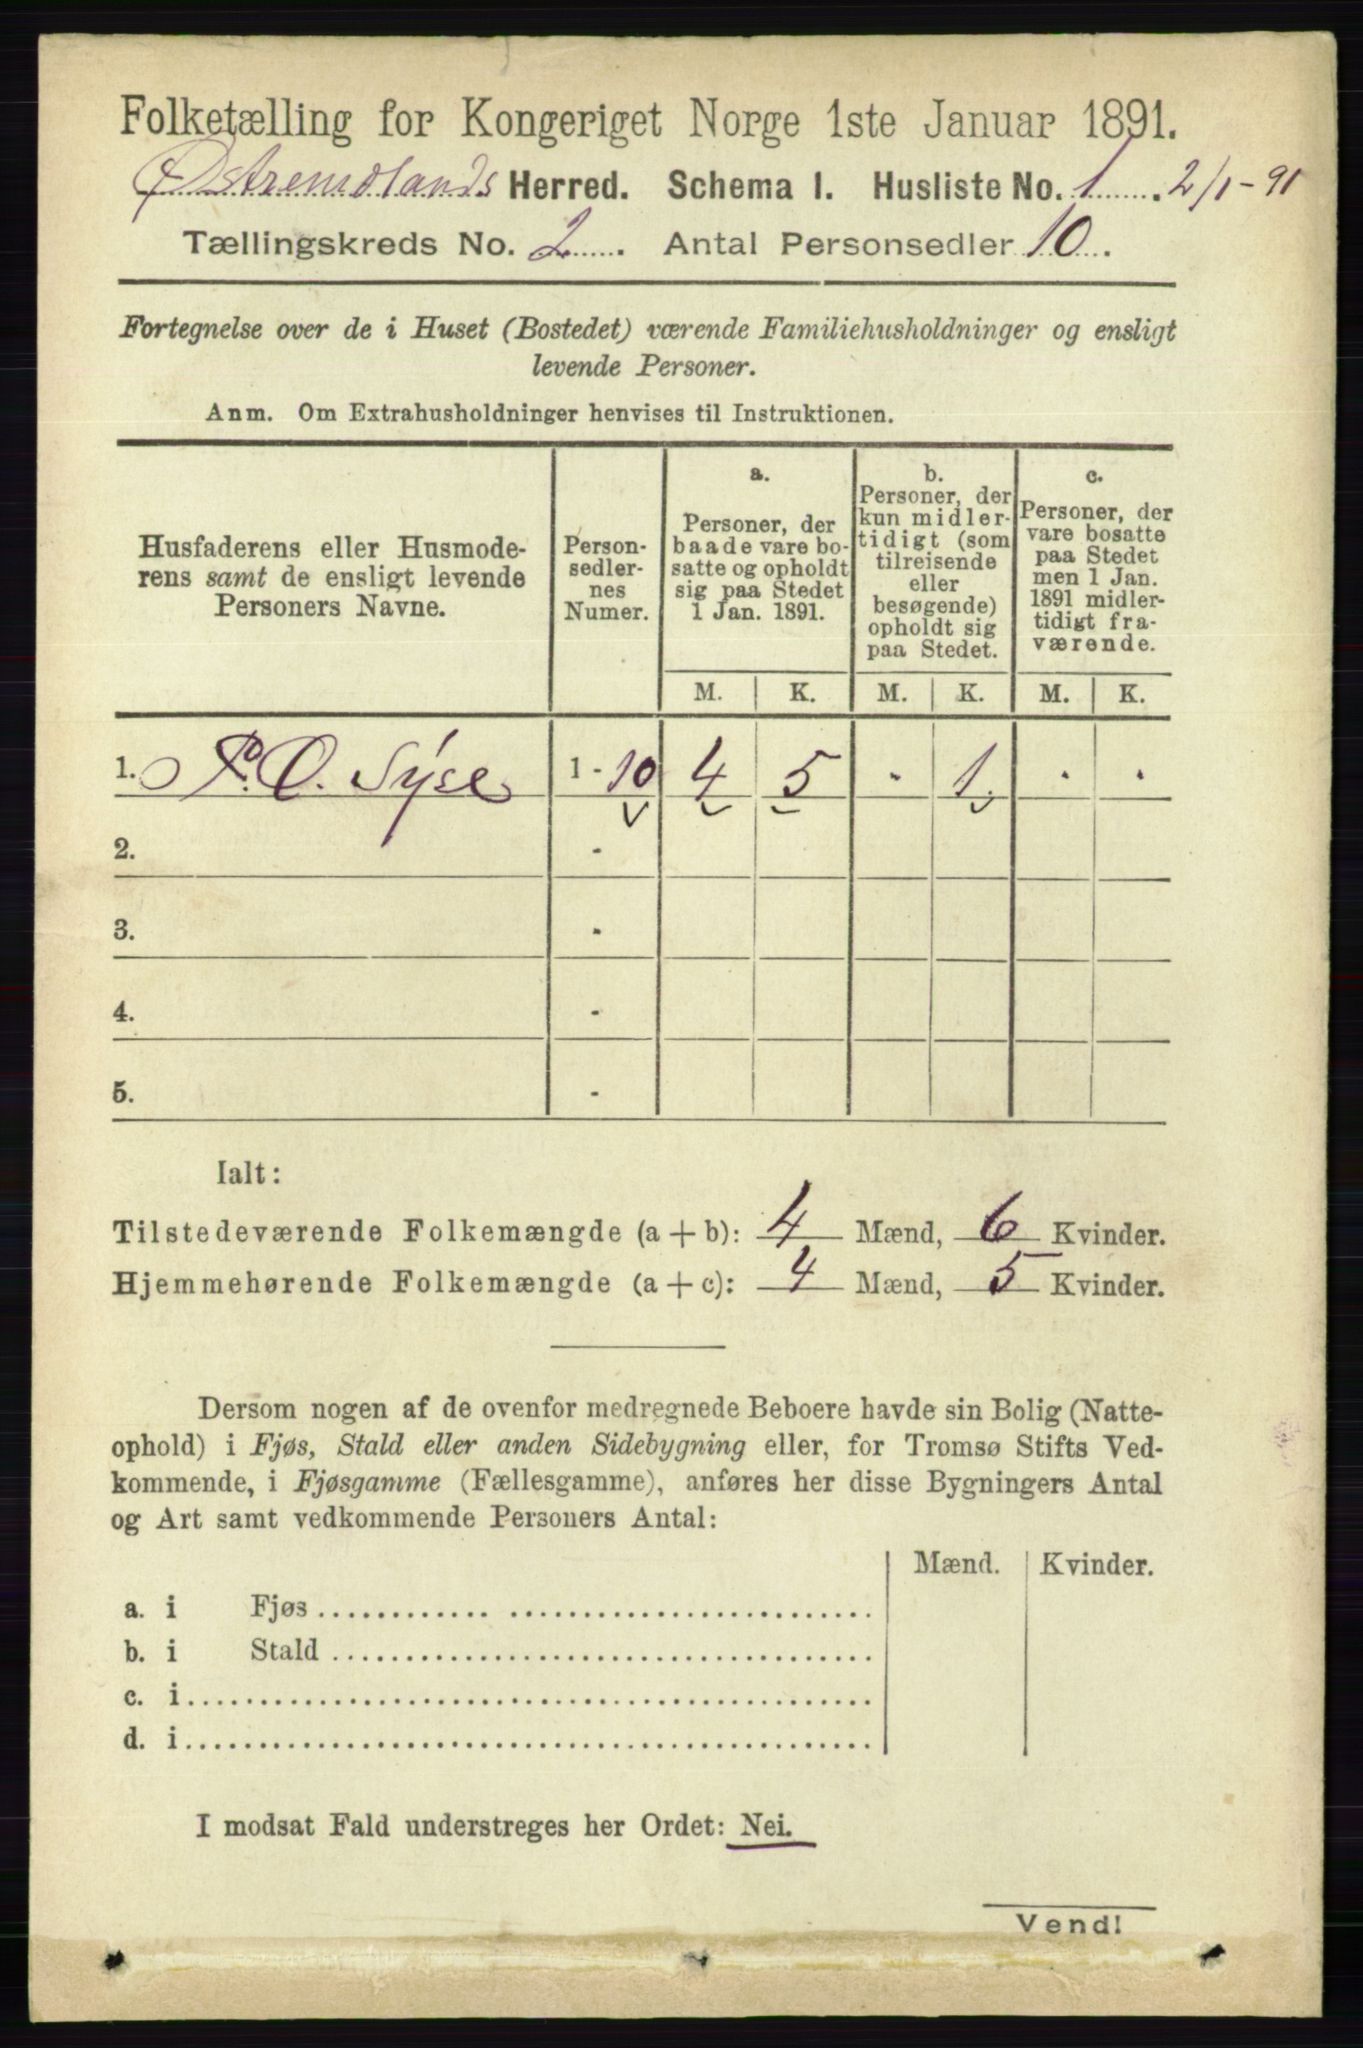 Folketælling for Kongeriget Norge 1ste Januar 1891.
Østremdlands Herred. Schema I. Husliste No. 1 2/1-91
Tællingskreds No. 2. Antal Personsedler 10.
Fortegnelse over de i Huset (Bostedet) værende Familiehusholdninger og ensligt
levende Personer.
Anm. Om Extrahusholdninger henvises til Instruktionen.
Husfaderens eller Husmode-
rens samt de ensligt levende
Personers Navne.
Person-
sedler-
nes
Numer.
a.
Personer, der
baade vare bo-
satte og opholdt
sig paa Stedet
1 Jan. 1891.
b.
Personer, der
kun midler-
tidigt (som
tilreisende
eller
besøgende)
opholdt sig
paa Stedet.
c.
Personer, der
vare bosatte
paa Stedet
men 1 Jan.
1891 midler-
tidigt fra-
værende.
M. K. M. K. M. K.
1. P. O. Syse 1 - 10 4 5 - 1 . .
2. -
3. -
4. -
5. -
Ialt:
Tilstedeværende Folkemængde (a + b): 4 Mænd, 6 Kvinder.
Hjemmehørende Folkemængde (a + c): 4 Mænd, 5 Kvinder.
Dersom nogen af de ovenfor medregnede Beboere havde sin Bolig (Natte-
ophold) i Fjøs, Stald eller anden Sidebygning eller, for Tromsø Stifts Ved-
kommende, i Fjøsgamme (Fællesgamme), anføres her disse Bygningers Antal
og Art samt vedkommende Personers Antal:
Mænd. Kvinder.
a. i Fjøs
b. i Stald
c. i
d. i
I modsat Fald understreges her Ordet: Nei.
Vend!